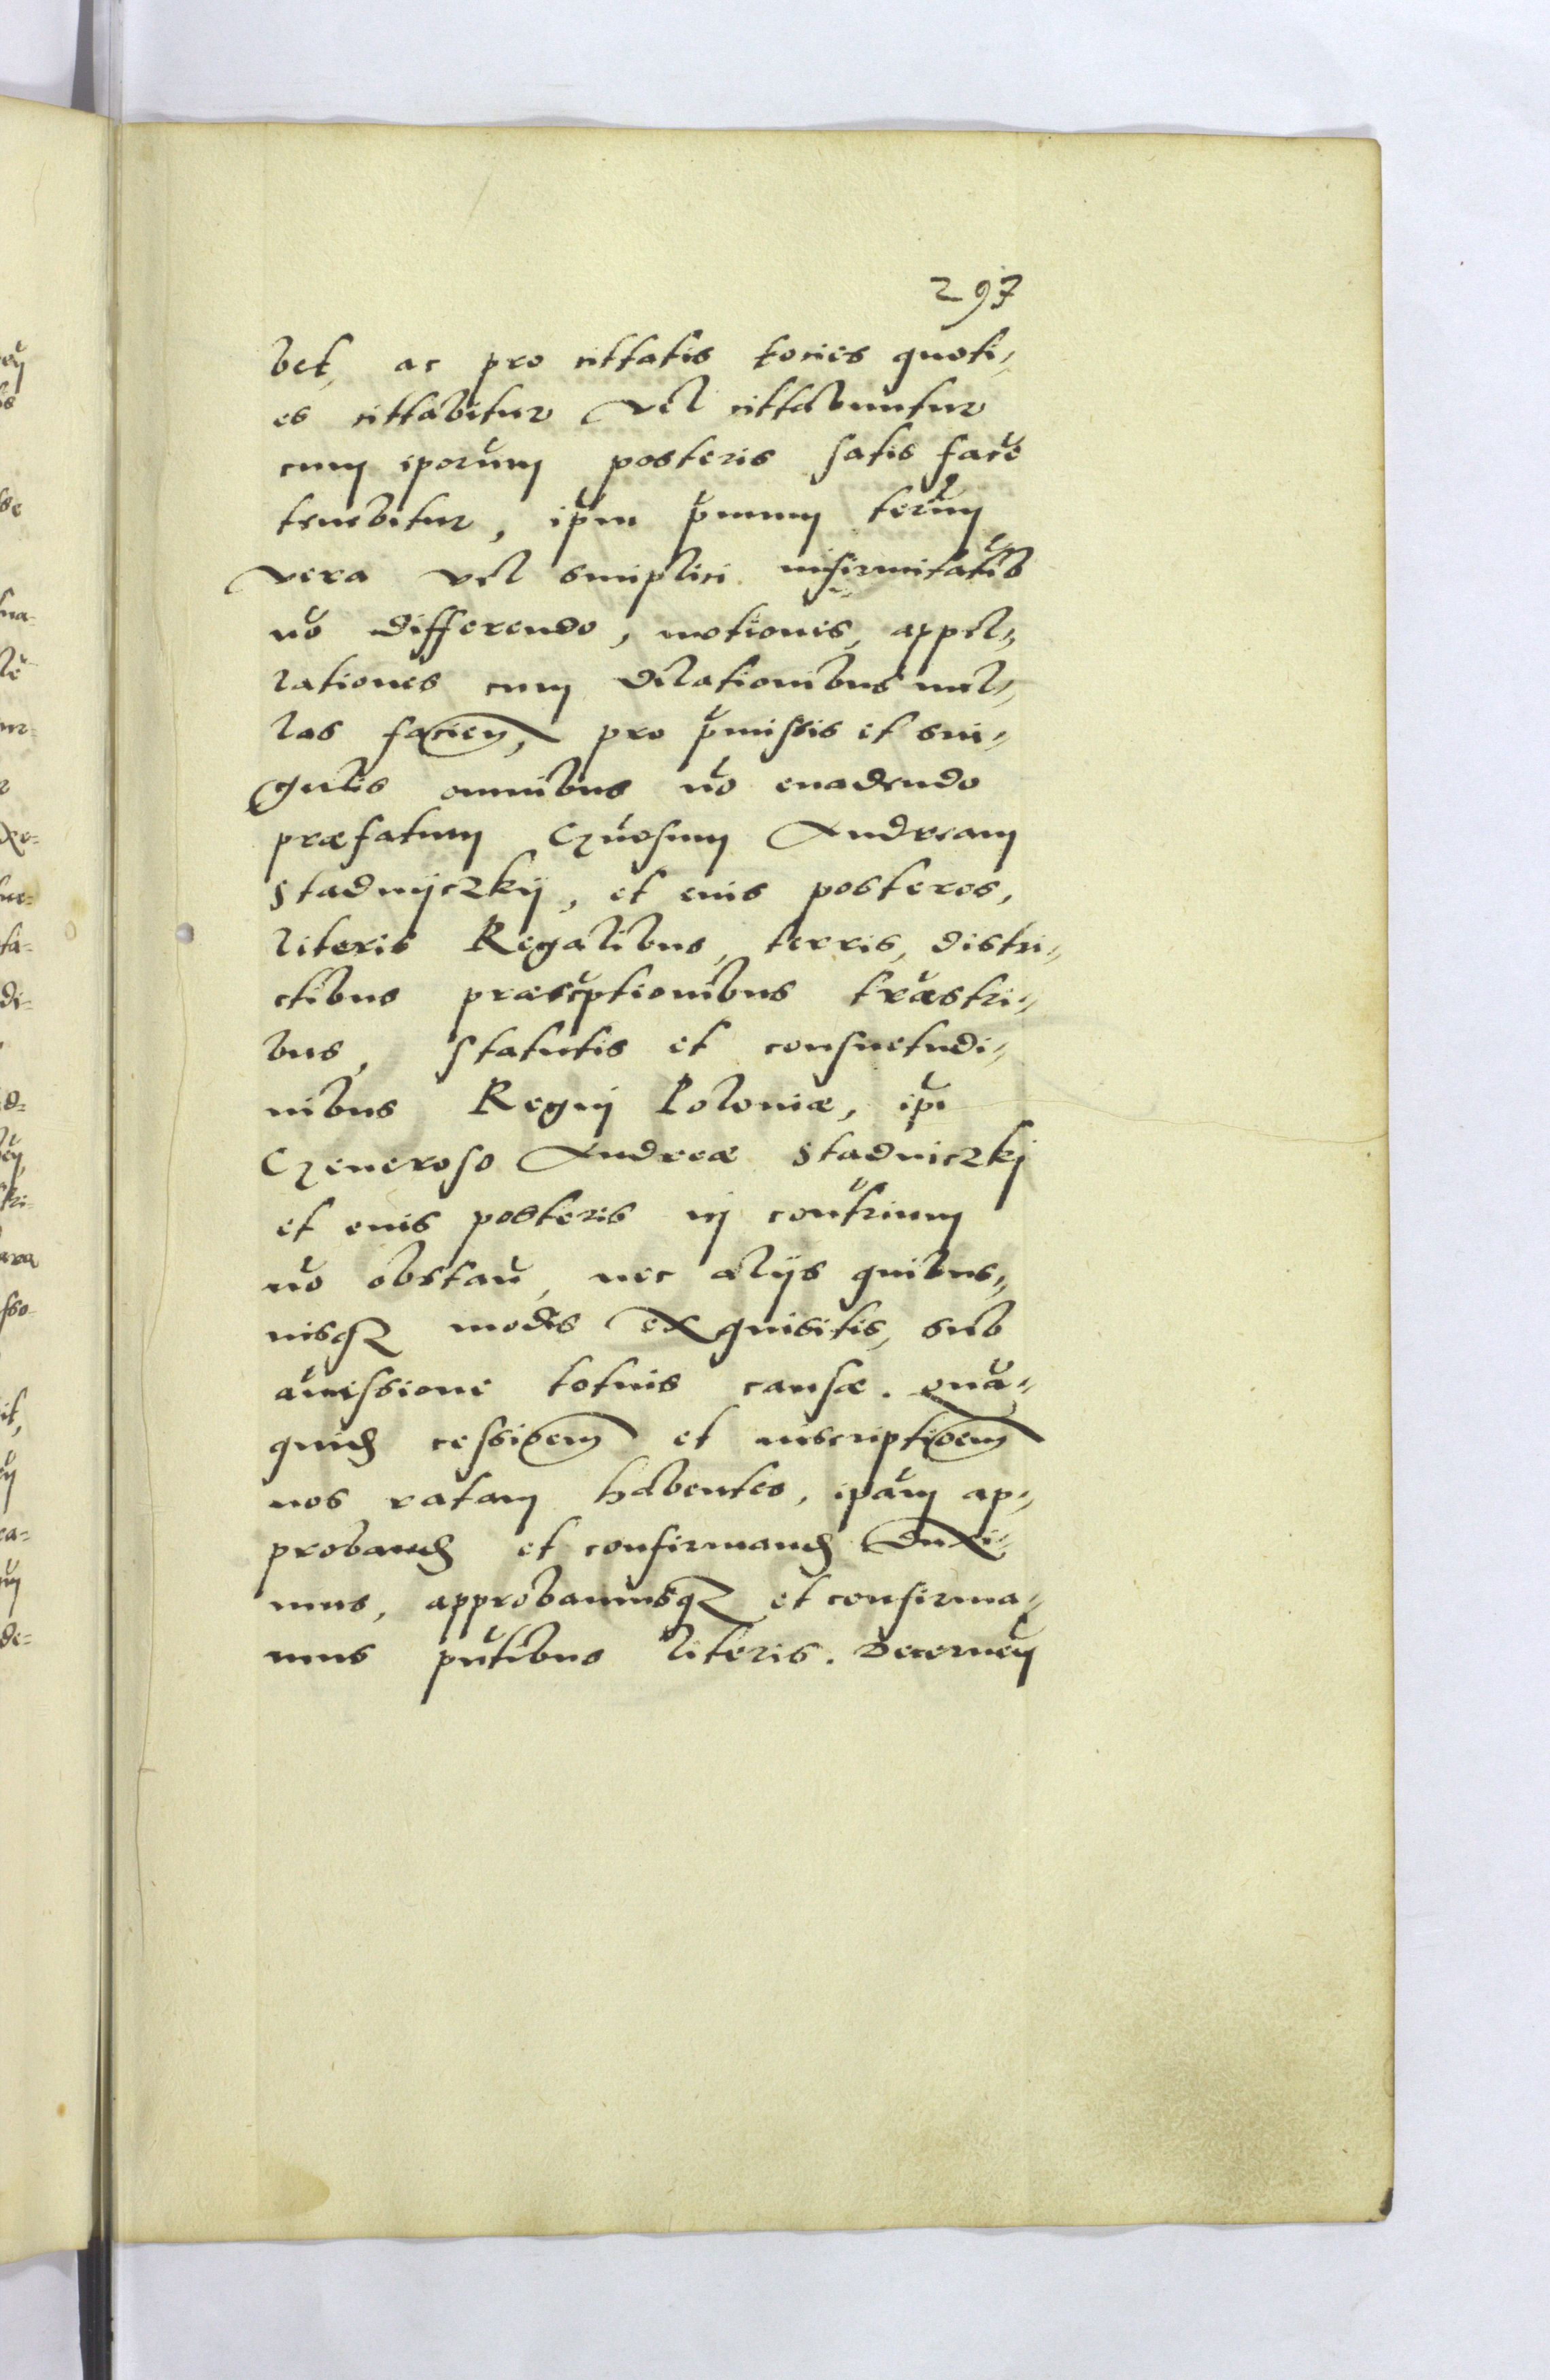 297
bet, ac pro cittatis tocies quoti„
es cittabitur vel cittabuntur
cum iporum posteris satis face
tenebitur, ipm pmum termm
vera vel simplici infirmitatib
no differendo, motiones, appel„
lationes cum dilationibus nul„
las facien, pro pmissis et sin„
gulis omnibus no euadendo
præfatum Gnosum Andream
Stadnijczkij, et eius posteros,
literis Regalibus, terris, distri„
ctibus præscptionibus træstri„
bus, statutis et consuetudi„
nibus Regnj Poloniæ, ipi
Generoso Andreæ Stadniczkj
et eius posteris in contrium
no obstan, nec alijs quibus„
uisq modis exquisitis, sub
amissione totius causæ. Qua„
quid cessioem et inscriptioem
nos ratam habentes, ipam ap„
proband et confirmand duxi„
mus, approbamusq et confirma„
mus pntibus literis. Decernen